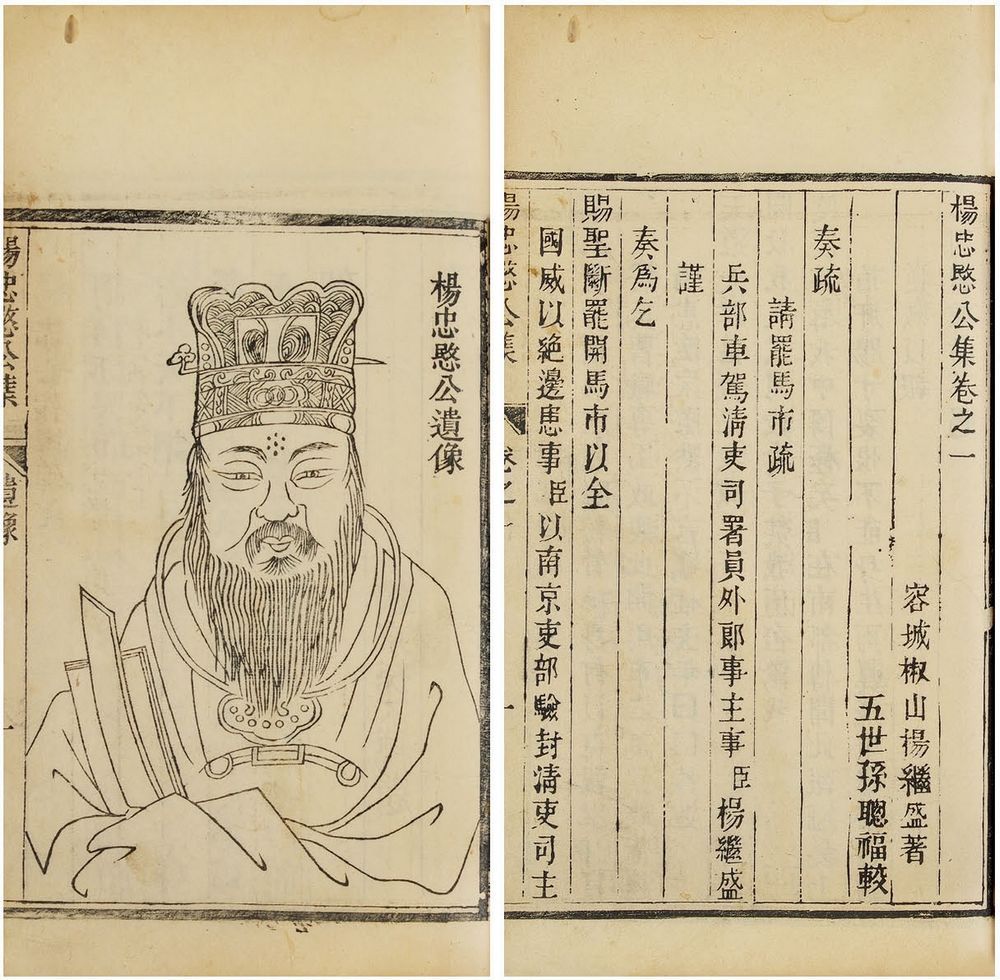 楊忠愍公遺像
遺像
楊忠愍公集卷之一
容城椒山楊繼盛著
五世孫聰福較
奏疏
請罷馬市疏
兵部車駕清吏司署員外郎事主事臣楊繼盛
謹
奏爲乞
賜聖斷罷開馬市以全
國威以絶邊患事臣以南京吏部驗封清吏司主